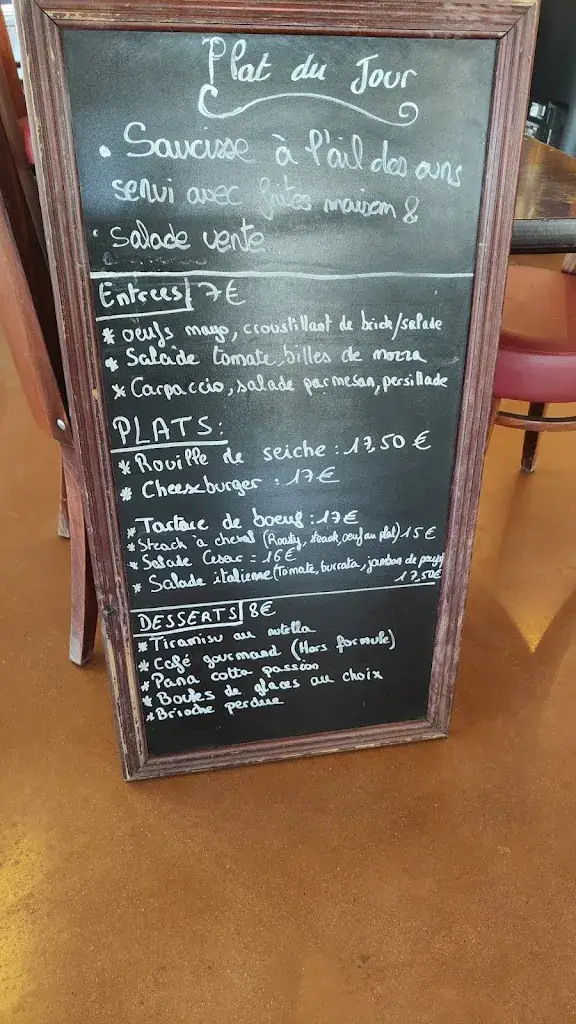 Plat du Jour
• Saucisse à l'ail des ours
servi avec frites maison &
• Salade verte
Entrees 7€
* oeufs mayo, croustillant de brick/salade
* Salade tomate, billes de mozza
* Carpaccio, salade parmesan, persillade
PLATS:
* Rouille de seiche : 17,50 €
* Cheeseburger : 17€
* Tartare de boeuf : 17€
* Steack à cheval (Rosty, steack, oeuf au plat) 15€
* Salade Cesar = 16€
* Salade italienne (Tomate, burrata, jambon de pays)
17,50€
DESSERTS 8€
* Tiramisu au nutella
* Café gourmand (Hors formule)
* Pana cotta passion
* Boules de glaces au choix
* Brioche perdue